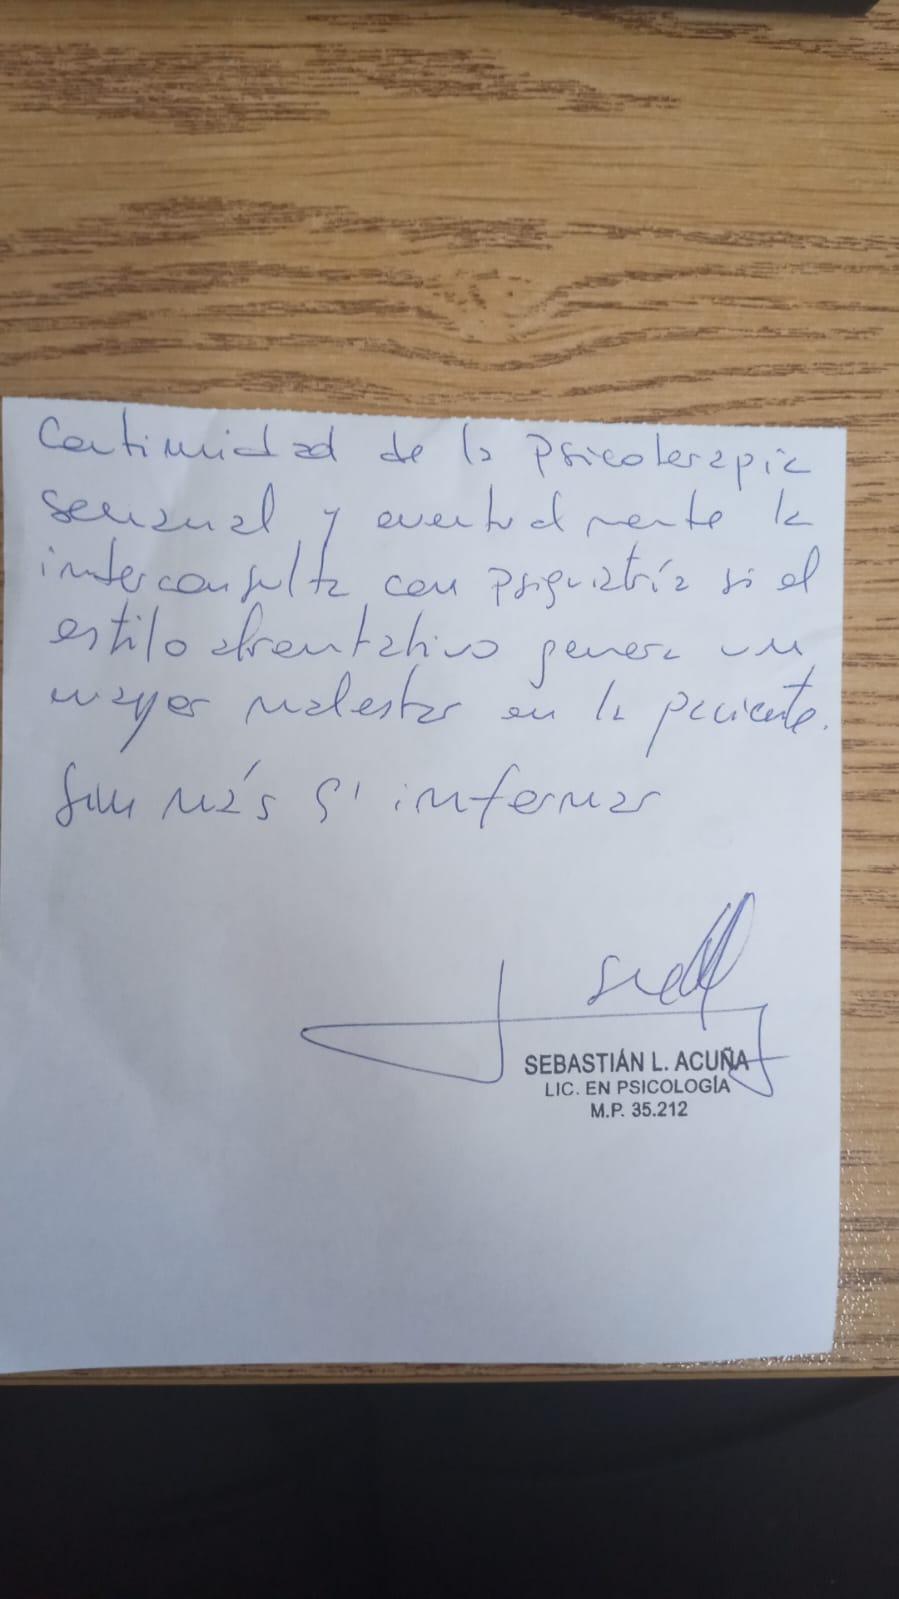 Continuidad de la psicoterapia
semanal y eventualmente la
interconsulta con psiquiatría si el
estilo afrontativo genera un
mayor malestar en la paciente.
Sin más p' informar
SEBASTIÁN L. ACUÑA
LIC. EN PSICOLOGÍA
M.P. 35.212